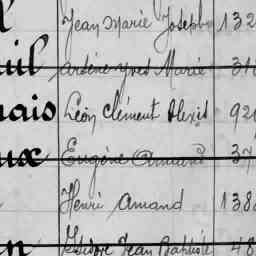 Jean Marie Joseph 132
uil Arsène Yves Marie 31
nais Léon Clément Alexis 92
ux Eugène Armand 37
Henri Amand 138
Isidore Jean Baptiste 48